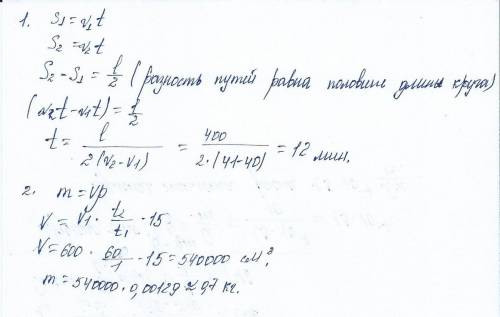 1. S₁ = v₁t
S₂ = v₂t
S₂ - S₁ = l/2 (разность путей равна половине длины круга)
(v₂t - v₁t) = l/2
t = l/2(v₂-v₁) = 400/2·(41-40) = 12 мин.
2. m = Vρ
V = V₁ · t₂/t₁ · 15
V = 600 · 60/1 · 15 = 540000 см³,
m = 540000 · 0,00129 ≈ 97 кг.